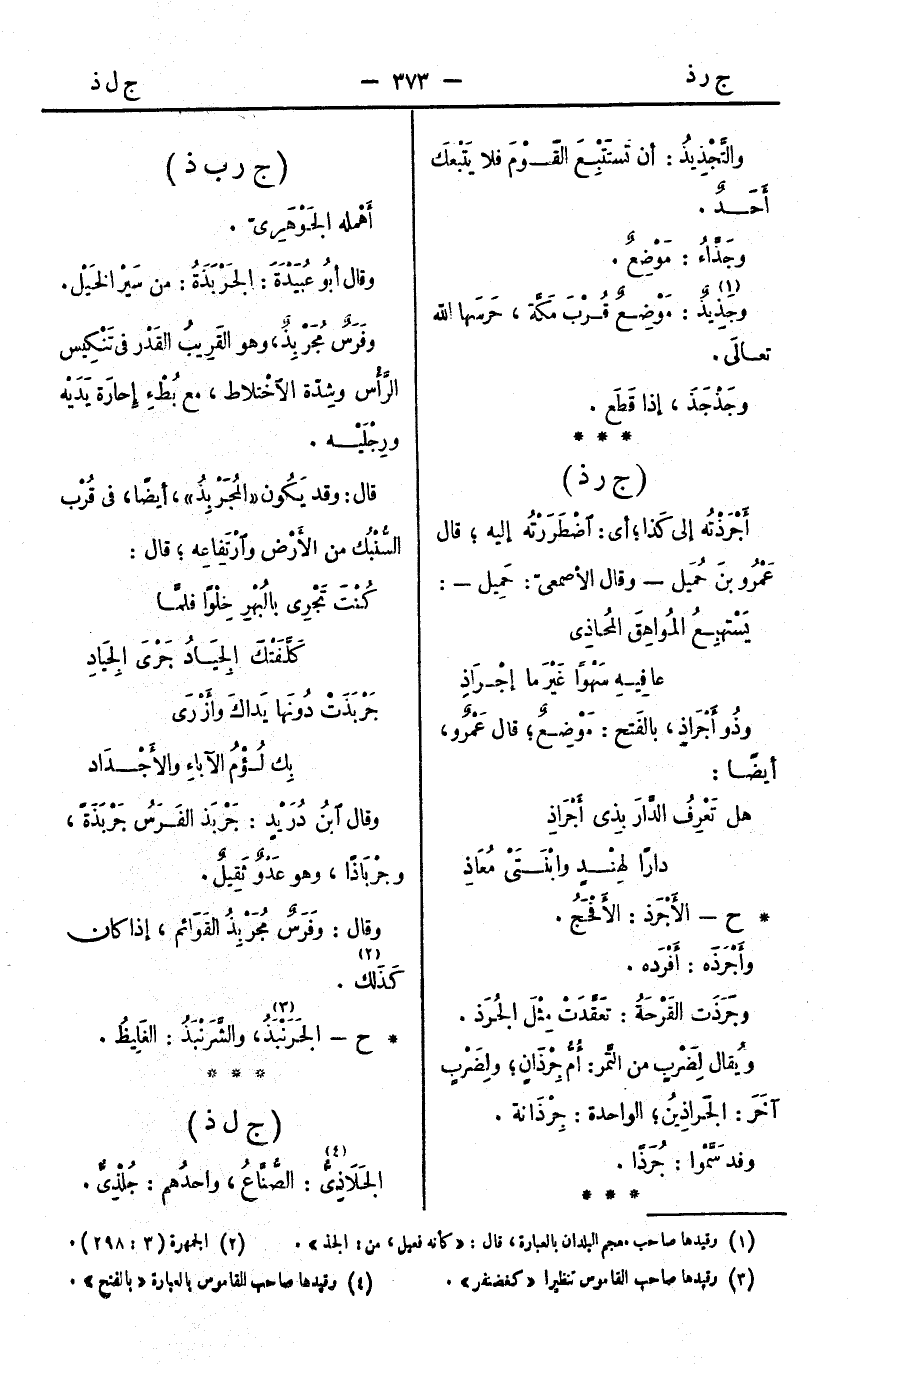 ج ر ذ
— ٣٧٣ —
ج ل ذ
والتَّجْذِيذُ : أن تَستَتْبِعَ القَّــوْمَ فلا يَتْبعكَ
أَحَــدٌ .
وجَذَّاءُ : مَوْضِعٌ .
وجَذِيذٌ (١) : مَوْضِعٌ قُـرْبَ مَكَّةَ ، حَرَسَها الله
تعـالَى .
وجَذْجَذَ ، إذا قَطَع .
* * *
(ج ر ذ)
أَجْرَذْتُه إلى كَذا؛ أى: اَضْطَرَرْتُه إليه ؛ قال
عَمْرُو بنَ حُمَيل — وقال الأصمعىّ : حَمِيل — :
يَسْتهِيـعُ المُواهِقَ المُحاذِى
عافِيـهِ سَهْوًا غَيْرَ ما إجْـرَاذِ
وذُو أَجْرَاذٍ ، بالفَتح : مَوْضِـعٌ ؛ قال عَمْرٌو ،
أيضًـا :
هل تَعْرِفُ الدَّارَ بِذِى أَجْرَاذِ
دارًا لهِنْـدٍ وابْنَـتَىْ مُعَاذِ
* ح — الأَجْرَذ : الأَفْحَجُ .
وأَجْرَذَه : أَفْرَده .
وجَرِذَت القَرْحَةُ : تَعقَّدَتْ مِثْلَ الجُرَذ .
ويُقال لِضَرْبٍ من التَّمر: أُمُّ جِرْذَانٍ ؛ ولِضَرْبٍ
آخَرَ : الجَراذِينُ؛ الواحدة : جِرْذَانة .
وقد سَمَّوْا : جُرَذًا .
* * *
(ج ر ب ذ)
أَهْمله الجَوْهَرِىّ .
وقال أبُو عُبَيْدَةَ : الجَرْبَذَةُ : من سَيْرِ الخَيْلِ .
وفَرَسٌ مُجَرْبِذٌ، وهو القَرِيبُ القَدْرِ فى تَنْكِيس
الرَّأْس وشِدّة الاَخْتلاط ، مع بُطْءِ إحارَة يَدَيْه
ورِجْلَيْـه .
قال: وقد يَكُون «المُجَرْبِذُ» ، أيضًا، فى قُرْب
السُّنْبُك من الأَرْضِ واَرْتفاعِه ؛ قال :
كُنْتَ تَجْرِى بالبُهْرِ خِلْوًا فلمَّـا
كَلَّفَتْكَ الِجيَـادُ جَرْىَ الِجيَادِ
جَرْبَذَتْ دُونَها يَداكَ وأَزْرَى
بِك لُـؤْمُ الآباءِ والأَجْـدَاد
وقال اَبنُ دُرَيْدٍ : جَرْبَذ الفَـرَسُ جَرْبَذَةً ،
وجِرْبَاذًا ، وهو عَدْوٌ ثَقِيلٌ .
وقال : وفَرَسٌ مُجَرْبِذُ القَوَائم ، إذا كان
كَذَلك (٢) .
* ح — الجَرَنْبَذُ (٣)، والشَّرَنْبَذُ : الغَلِيظُ .
* * *
(ج ل ذ)
الجَلَاذِىُّ (٤) : الصُّنَّاعُ ، واحدُهم : جُلْذِىٌّ .
(١) وقيدها صاحب معجم البلدان بالعبارة ، قال : « كأنه فعيل ، من : الجذ » .
(٢) الجمهرة (٣ : ٢٩٨) .
(٣) وقيدها صاحب القاموس تنظيرا « كغضنفر » .
(٤) وقيدها صاحب القاموس بالعبارة « بالفتح » .